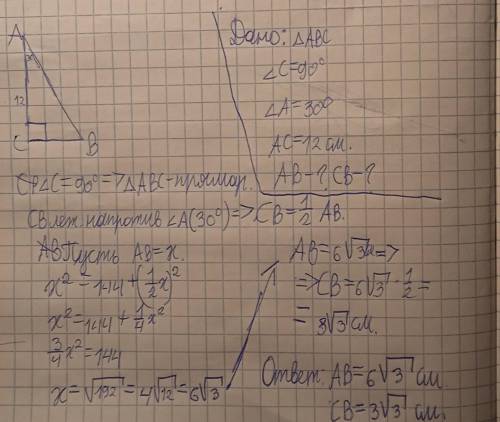 A
12
C
B
Дано: △ABC
∠C=90°
∠A=30°
AC=12 см.
AB-? CB-?
∠C=90° => △ABC-прямоуг.
CB леж. напротив ∠A(30°) => CB=1/2 AB.
Пусть AB=x.
x²=144+(1/2x)²
x²=144+1/4x²
3/4x²=144
x=√192=4√12=6√3
AB=6√3 =>
=>CB=6√3·1/2=
=3√3 см.
Ответ: AB=6√3 см
CB=3√3 см.